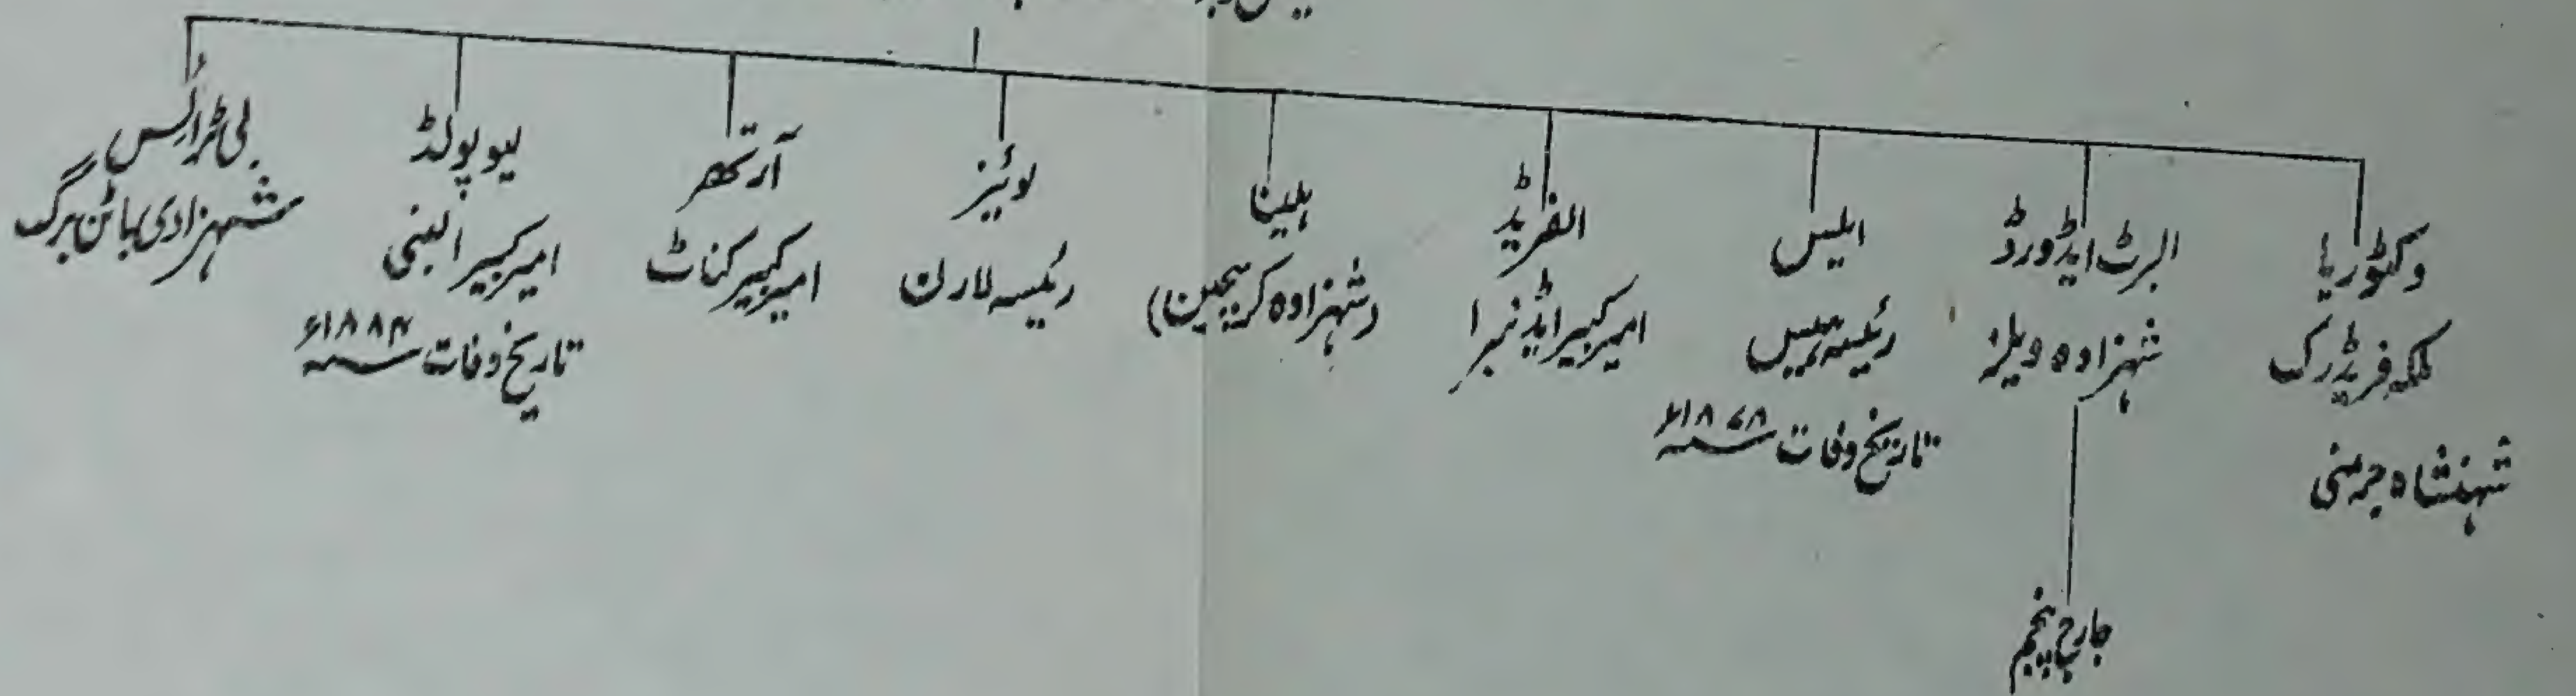 وکٹوریا
ملکہ فریڈرک
شہنشاہ جرمنی
البرٹ ایڈورڈ
شہزادہ ویلز
جارج پنجم
ایلس
رئیسہ ہیس
تاریخ وفات ۱۸۷۸ء
الفریڈ
امیر کبیر ایڈنبرا
ہلینا
(شہزادہ کریسچین)
لوئیز
رئیسہ لارن
آرتھر
امیر کبیر کناٹ
لیوپولڈ
امیر کبیر البنی
تاریخ وفات ۱۸۸۴ء
بی ٹرائس
شہزادی باٹن برگ